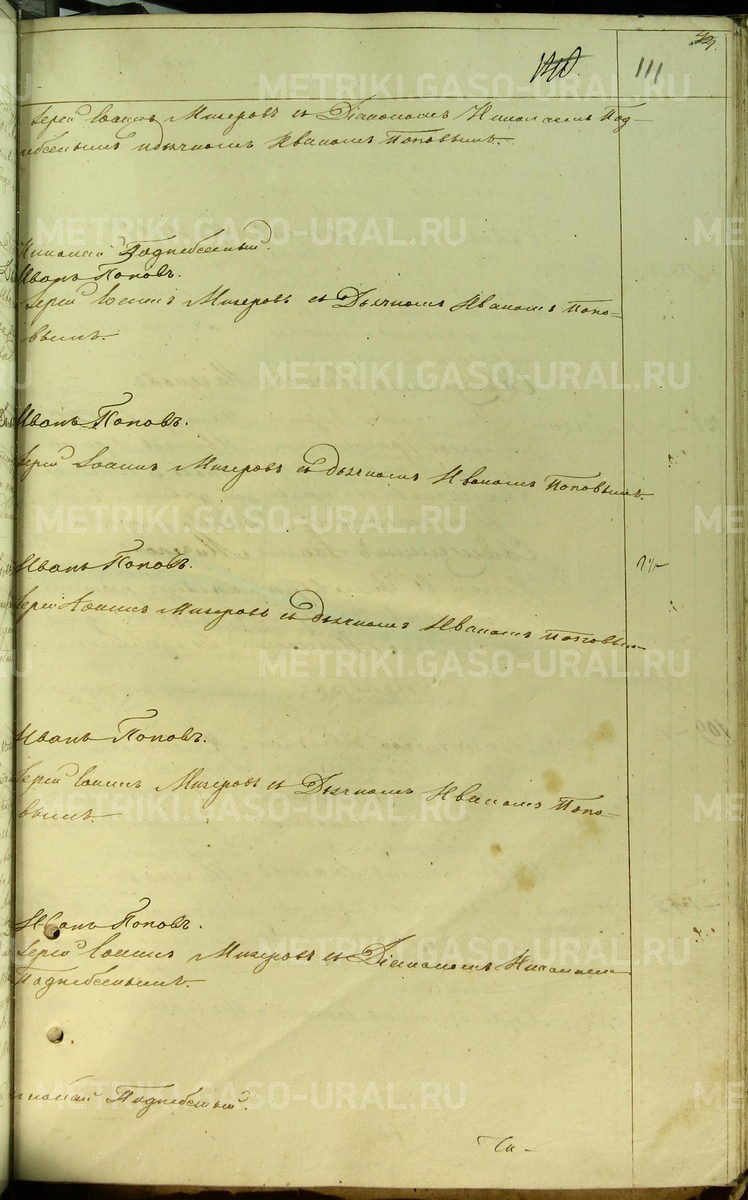 111
Іерей Іоаннъ Мизеровъ съ Діакономъ Николаемъ Под-
небеснымъ и дьячкомъ Иваномъ Поповымъ.
Николай Поднебесный.
Иванъ Поповъ.
Іерей Іоаннъ Мизеровъ съ Дьячкомъ Иваномъ Попо-
вымъ.
Иванъ Поповъ.
Іерей Іоаннъ Мизеровъ съ дьячкомъ Иваномъ Поповымъ.
Иванъ Поповъ.
Іерей Іоаннъ Мизеровъ съ дьячкомъ Иваномъ Поповым
Иванъ Поповъ.
Іерей Іоаннъ Мизеровъ съ Дьячкомъ Иваномъ Попо-
вымъ.
Иванъ Поповъ.
Іерей Іоаннъ Мизеровъ съ Діакономъ Николаемъ
Поднебеснымъ.
Николай Поднебесный.
METRIKI.GASO-URAL.RU